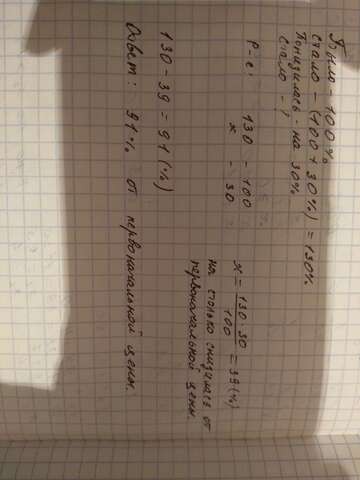 Было - 100%
Стало - (100 + 30%) = 130%
Понизилась - на 30%
Стало - ?
Р-е:
130 - 100
x - 30
x = 130 · 30 / 100 = 39 (%)
на столько снизилась от
первоначальной цены.
130 - 39 = 91 (%)
Ответ: 91% от первоначальной цены.